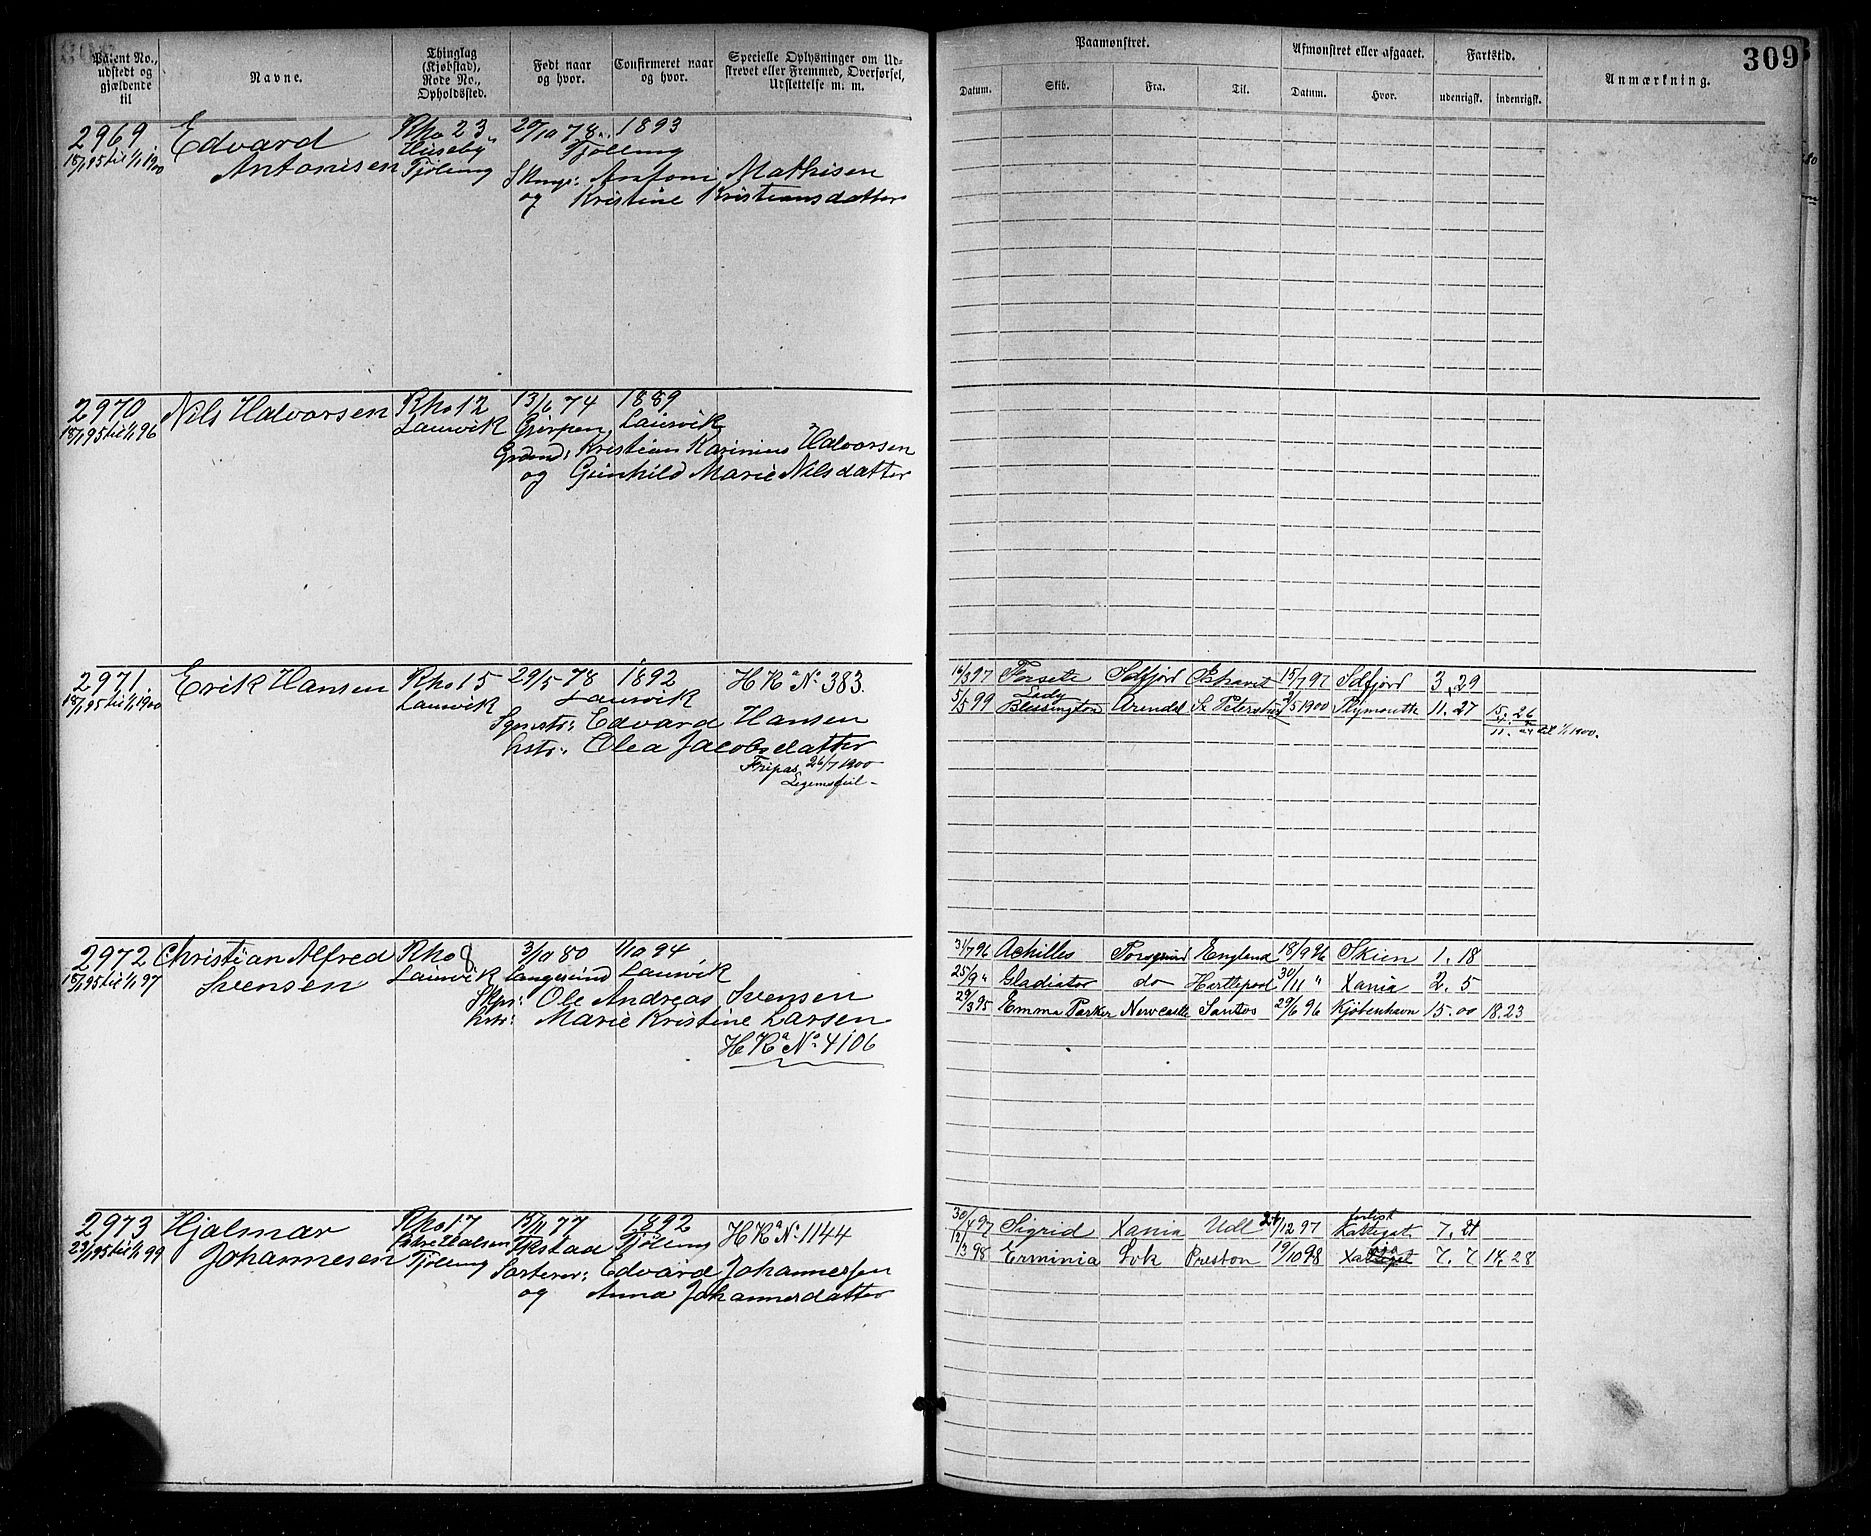 309
Patent No., udstedt og gjældende til
Navne.
Thinglag (Kjøbstad), Rode No., Opholdssted.
Født naar og hvor.
Confirmeret naar og hvor.
Specielle Oplysninger om Udskrevet eller Fremmed, Overførsel, Udslettelse m. m.
Paamønstret.
Afmønstret eller afgaaet.
Fartstid.
Anmærkning.
Datum. Skib. Fra. Til. Datum. Hvor. udenrigsk. indenrigsk.
2969 Edvard Rho 23 29/10 78 1893
18/1 95 til 1/1 1900 Antonisen Huseby Tjølling Tjølling
Anton Mathisen
og Kristine Kristiansdatter
2970 Nils Halvorsen Rho 12 13/6 74 1889
18/1 95 til 1/1 96 Laurvik Gjerpen Laurvik
Kristian Karinius Halvorsen
og Gunhild Marie Nilsdatter
2971 Erik Hansen Rho 15 29/5 78 1892 H Ra No 383.
18/1 95 til 1/1 1900 Laurvik Laurvik
Edvard Hansen
hstr: Olea Jacobsdatter
Fripas 26/7 1900
Legemsfeil
16/3 97 Sølfjord 15/7 97 Sølfjord 3. 29
5/5 99 Lady Blessington Arendal St Petersburg 2/5 1900 Plymouth 11. 27 15. 26
til 1/1 1900.
2972 Christian Alfred Rho 8 3/10 80 1/10 94
18/1 95 til 1/1 97 Svensen Laurvik Langesund Laurvik
Ole Andreas Svensen
hstr: Marie Kristine Larsen
H Ra No 4106
31/7 96 Achilles Porsgrund England 18/9 96 Skien 1. 18
25/9 " Gladiator do Hartlepool 30/11 " Xania 2. 5
29/3 95 Emma Parker Newcastle Santos 29/6 96 Kjøbenhavn 15. 00 18. 23
2973 Hjalmar Rho 17 15/11 77 1892 H Ra No 1144
23/1 95 til 1/1 99 Johannesen Tjølling Tjølling
Edvard Johannessen
og Anna Johannesdatter
30/4 97 Sigrid Xania Udl 24/12 97 forlist Kattegat 7. 24
12/3 98 Erminia Lvk Preston 19/10 98 Xania 7. 7 14. 28